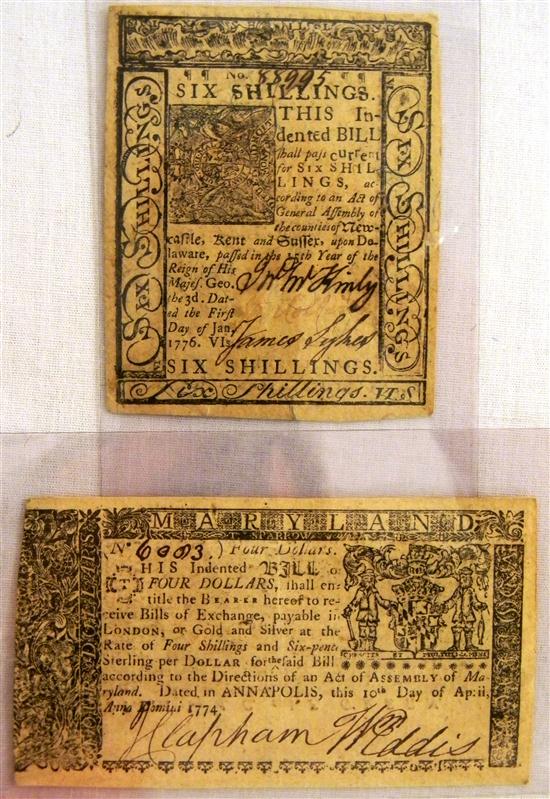 No. 88995
SIX SHILLINGS.
SIX SHILLINGS
THIS In-
dented BILL
shall paſs current
for SIX SHIL
LINGS, ac-
cording to an Act of
General Aſſembly of
the counties of New-
caſtle, Kent and Suſſex, upon De-
laware, paſſed in the 15th Year of the
Reign of His
Majeſ. Geo.
the 3d. Dat-
ed the Firſt
Day of Jan.
1776. VIs
Jno McKinly
James Sykes
SIX SHILLINGS
SIX SHILLINGS.
Six Shillings. VI.s
MARYLAND
No. 6003.) Four Dollars.
THIS Indented BILL of
FOUR DOLLARS, ſhall en-
title the BEARER hereof to re-
ceive Bills of Exchange, payable in
LONDON, or Gold and Silver at the
Rate of Four Shillings and Six-pence
Sterling per DOLLAR for the ſaid Bill
according to the Directions of an Act of ASSEMBLY of Ma-
ryland. Dated in ANNAPOLIS, this 10th Day of April,
Anno Domini 1774.
CRESCITE ET MULTIPLICAMINI
J Clapham Wm Eddis